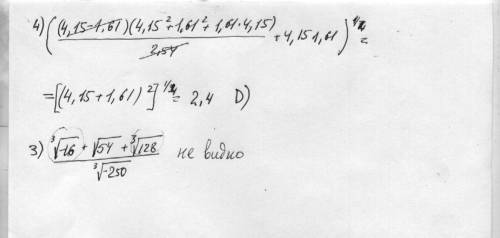 4) ( (4,15-1,61)(4,15² + 1,61² + 1,61·4,15) / 2,54 + 4,15 1,61 )^1/4 =
= [(4,15+1,61)²]^1/4 = 2,4 D)
3) (∛-16 + √54 + ∛128) / ∛-250 не видно